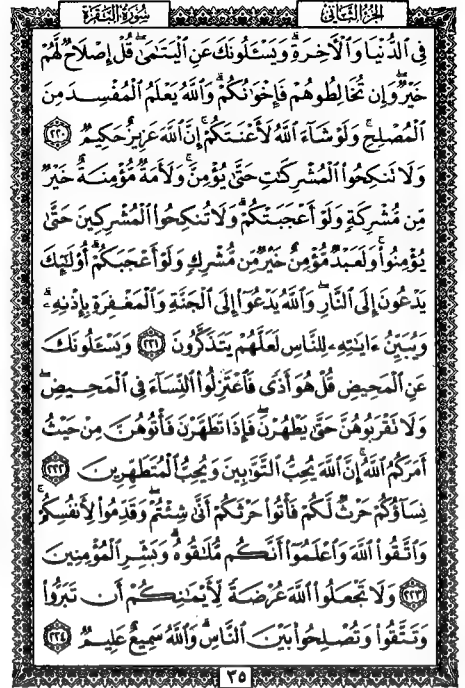 سُورَةُ البَقَرَةِ
الجُزْءُ الثَّانِي
فِي الدُّنْيَا وَالْآخِرَةِ ۗ وَيَسْـَٔلُونَكَ عَنِ الْيَتَـٰمَىٰ ۖ قُلْ إِصْلَاحٌ لَّهُمْ
خَيْرٌ ۖ وَإِن تُخَالِطُوهُمْ فَإِخْوَٰنُكُمْ ۚ وَاللَّهُ يَعْلَمُ الْمُفْسِدَ مِنَ
الْمُصْلِحِ ۚ وَلَوْ شَآءَ اللَّهُ لَأَعْنَتَكُمْ ۚ إِنَّ اللَّهَ عَزِيزٌ حَكِيمٌ ٢٢٠
وَلَا تَنكِحُوا الْمُشْرِكَـٰتِ حَتَّىٰ يُؤْمِنَّ ۚ وَلَأَمَةٌ مُّؤْمِنَةٌ خَيْرٌ
مِّن مُّشْرِكَةٍ وَلَوْ أَعْجَبَتْكُمْ ۗ وَلَا تُنكِحُوا الْمُشْرِكِينَ حَتَّىٰ
يُؤْمِنُوا ۚ وَلَعَبْدٌ مُّؤْمِنٌ خَيْرٌ مِّن مُّشْرِكٍ وَلَوْ أَعْجَبَكُمْ ۗ أُو۟لَـٰٓئِكَ
يَدْعُونَ إِلَى النَّارِ ۖ وَاللَّهُ يَدْعُوٓا إِلَى الْجَنَّةِ وَالْمَغْفِرَةِ بِإِذْنِهِۦ ۖ
وَيُبَيِّنُ ءَايَـٰتِهِۦ لِلنَّاسِ لَعَلَّهُمْ يَتَذَكَّرُونَ ٢٢١ وَيَسْـَٔلُونَكَ
عَنِ الْمَحِيضِ ۖ قُلْ هُوَ أَذًى فَاعْتَزِلُوا النِّسَآءَ فِي الْمَحِيضِ ۖ
وَلَا تَقْرَبُوهُنَّ حَتَّىٰ يَطْهُرْنَ ۖ فَإِذَا تَطَهَّرْنَ فَأْتُوهُنَّ مِنْ حَيْثُ
أَمَرَكُمُ اللَّهُ ۚ إِنَّ اللَّهَ يُحِبُّ التَّوَّٰبِينَ وَيُحِبُّ الْمُتَطَهِّرِينَ ٢٢٢
نِسَآؤُكُمْ حَرْثٌ لَّكُمْ فَأْتُوا حَرْثَكُمْ أَنَّىٰ شِئْتُمْ ۖ وَقَدِّمُوا لِأَنفُسِكُمْ ۚ
وَاتَّقُوا اللَّهَ وَاعْلَمُوٓا أَنَّكُم مُّلَـٰقُوهُ ۗ وَبَشِّرِ الْمُؤْمِنِينَ
٢٢٣ وَلَا تَجْعَلُوا اللَّهَ عُرْضَةً لِّأَيْمَـٰنِكُمْ أَن تَبَرُّوا
وَتَتَّقُوا وَتُصْلِحُوا بَيْنَ النَّاسِ ۗ وَاللَّهُ سَمِيعٌ عَلِيمٌ ٢٢٤
٣٥